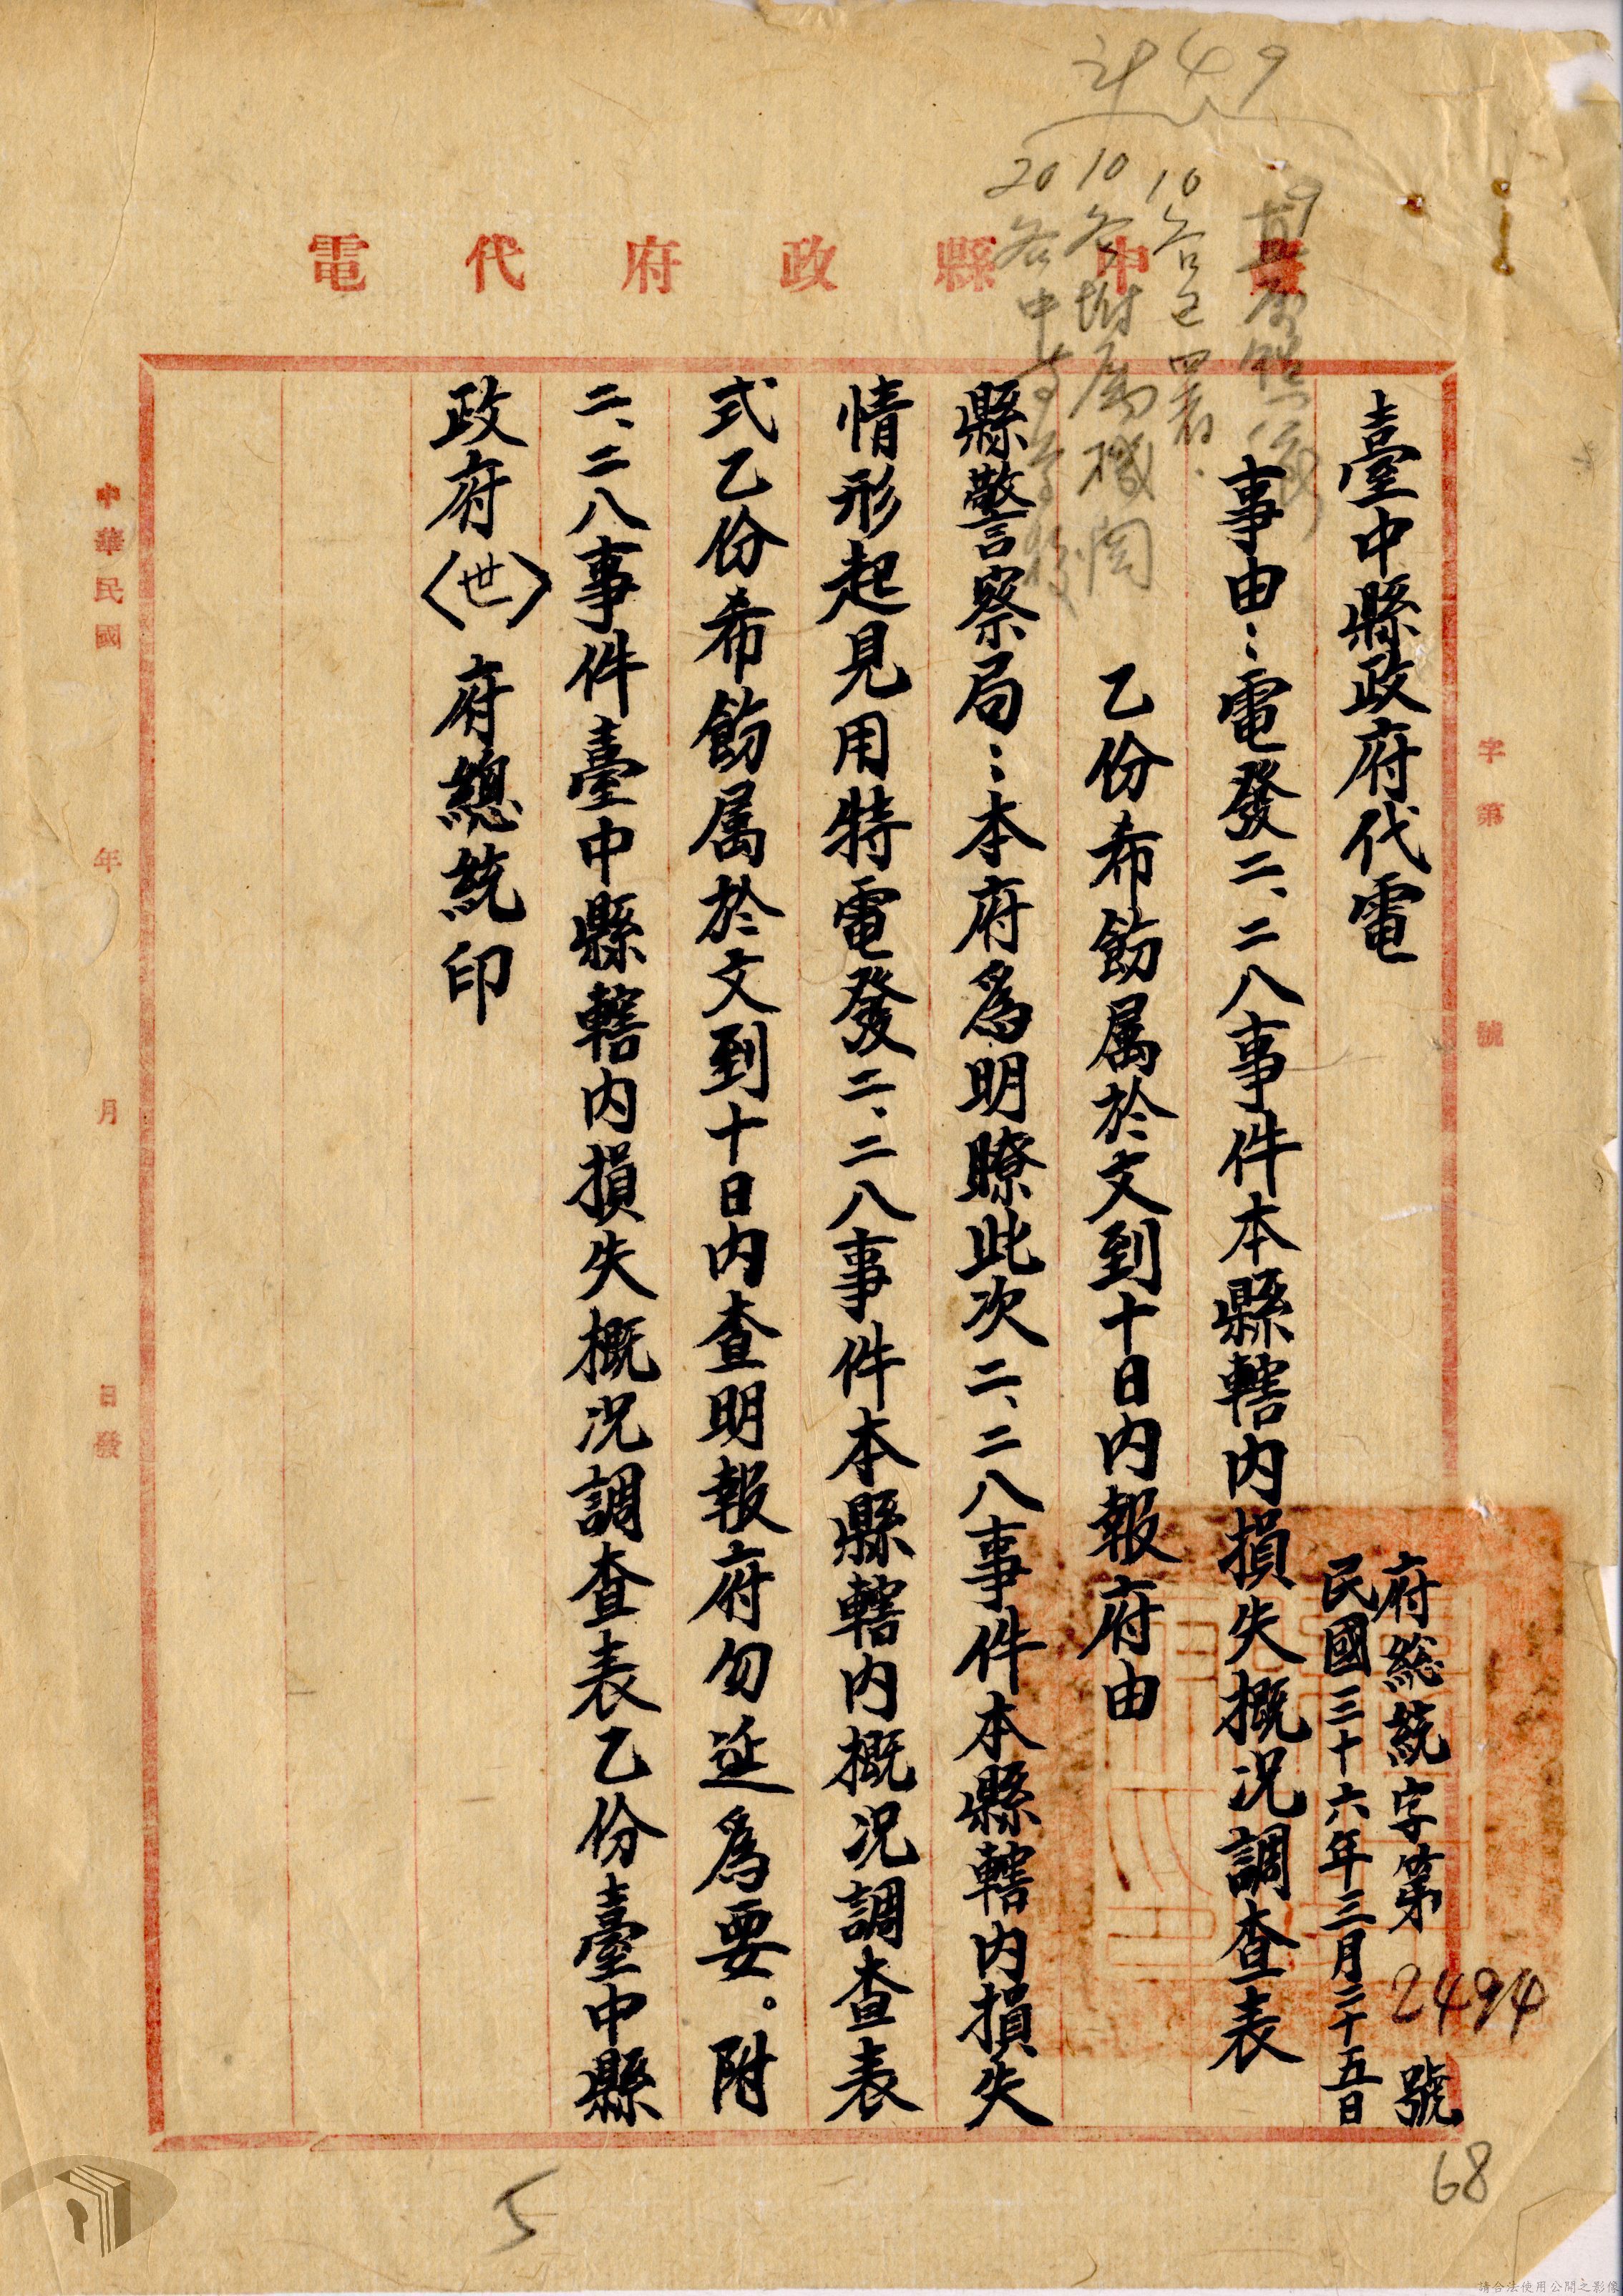 計49
9
10各區署
10各附屬機関
20各中等學校
臺中縣政府代電
字第 號
臺中縣政府代電
府總統字第2494號
民國三十六年三月二十五日
事由：電發二、二八事件本縣轄内損失概況調查表
乙份希飭属於文到十日内報府由
縣警察局：本府為明瞭此次二、二八事件本縣轄内損失
情形起見用特電發二、二八事件本縣轄内概況調查表
式乙份希飭属於文到十日内查明報府勿延為要。附
二、二八事件臺中縣轄内損失概況調查表乙份臺中縣
政府〈世〉府總統印
中華民國 年 月 日發
68
5
請合法使用公開之影像